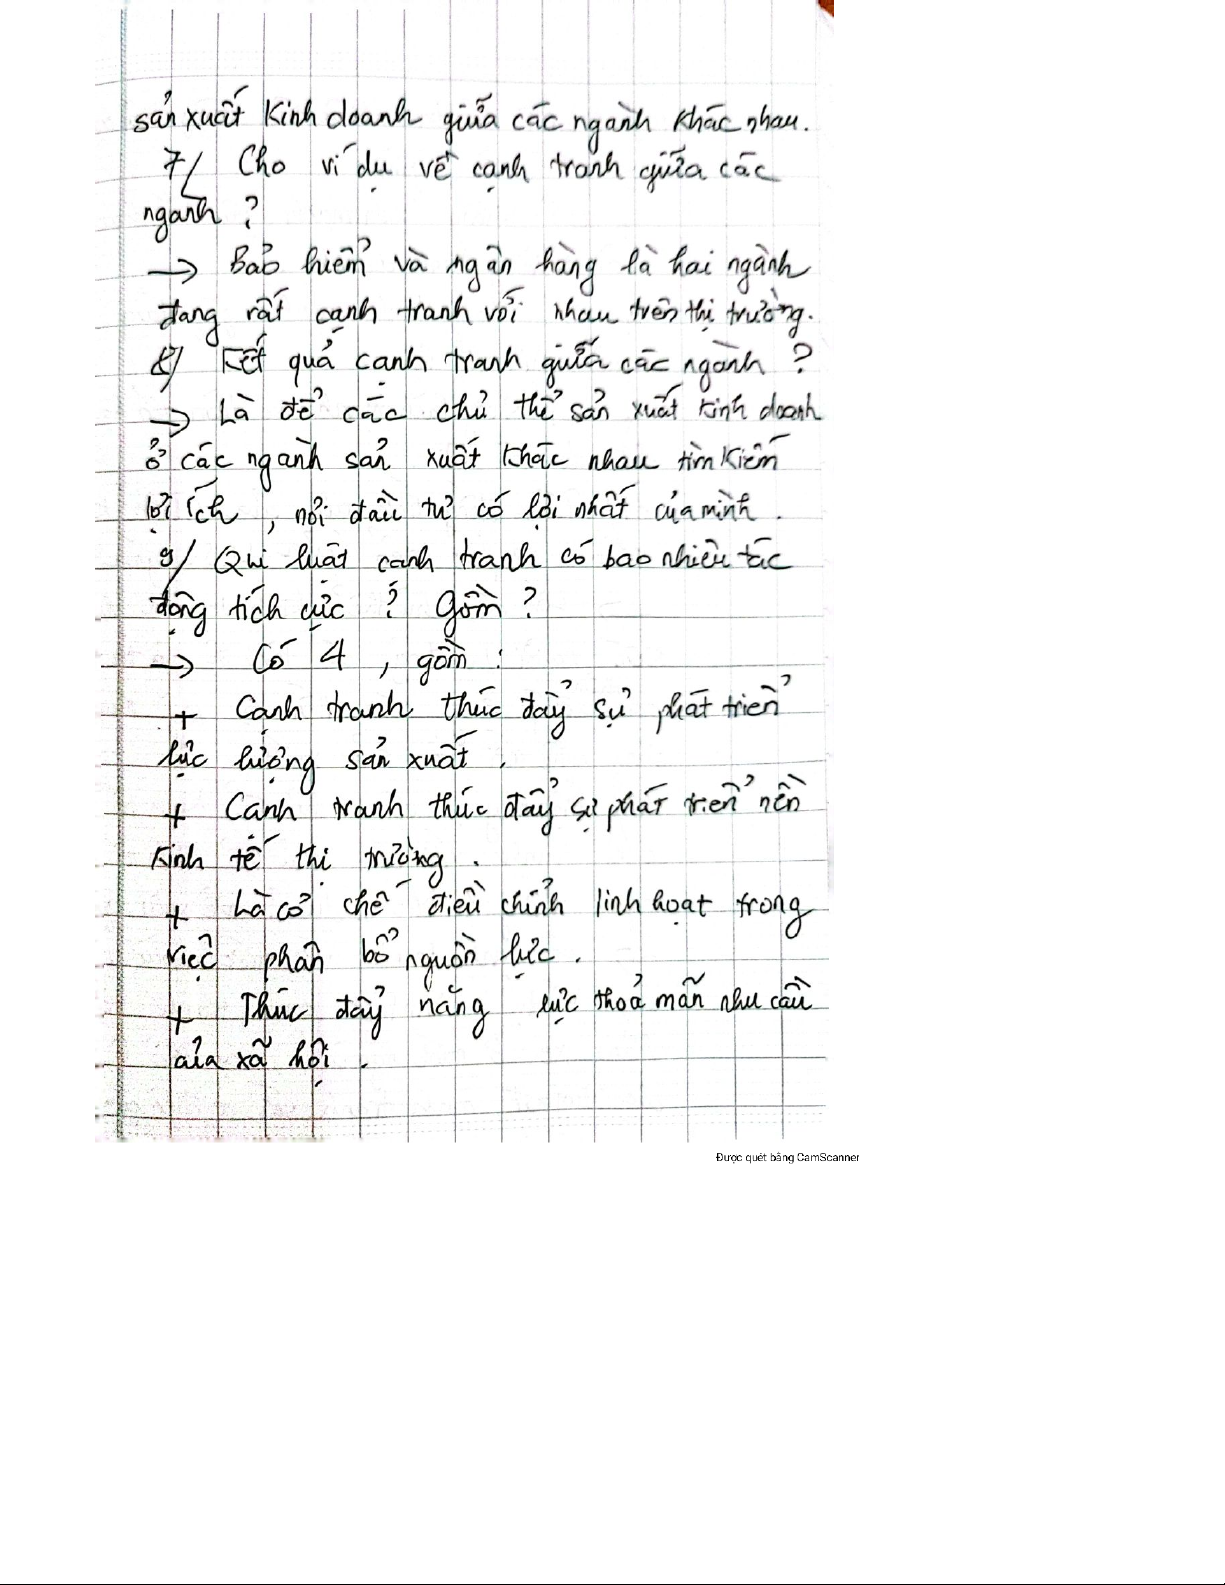 sản xuất kinh doanh giữa các ngành khác nhau.
7/ Cho ví dụ về cạnh tranh giữa các
ngành ?
→ Bảo hiểm và ngân hàng là hai ngành
đang rất cạnh tranh với nhau trên thị trường.
8/ Kết quả cạnh tranh giữa các ngành ?
→ Là để các chủ thể sản xuất kinh doanh
ở các ngành sản xuất khác nhau tìm kiếm
lợi ích , nơi đầu tư có lợi nhất của mình .
9/ Qui luật cạnh tranh có bao nhiêu tác
động tích cực ? Gồm ?
→ Có 4 , gồm :
+ Cạnh tranh thúc đẩy sự phát triển
lực lượng sản xuất .
+ Cạnh tranh thúc đẩy sự phát triển nền
kinh tế thị trường .
+ Là cơ chế điều chỉnh linh hoạt trong
việc phân bổ nguồn lực .
+ Thúc đẩy năng lực thoả mãn nhu cầu
của xã hội .
Được quét bằng CamScanner